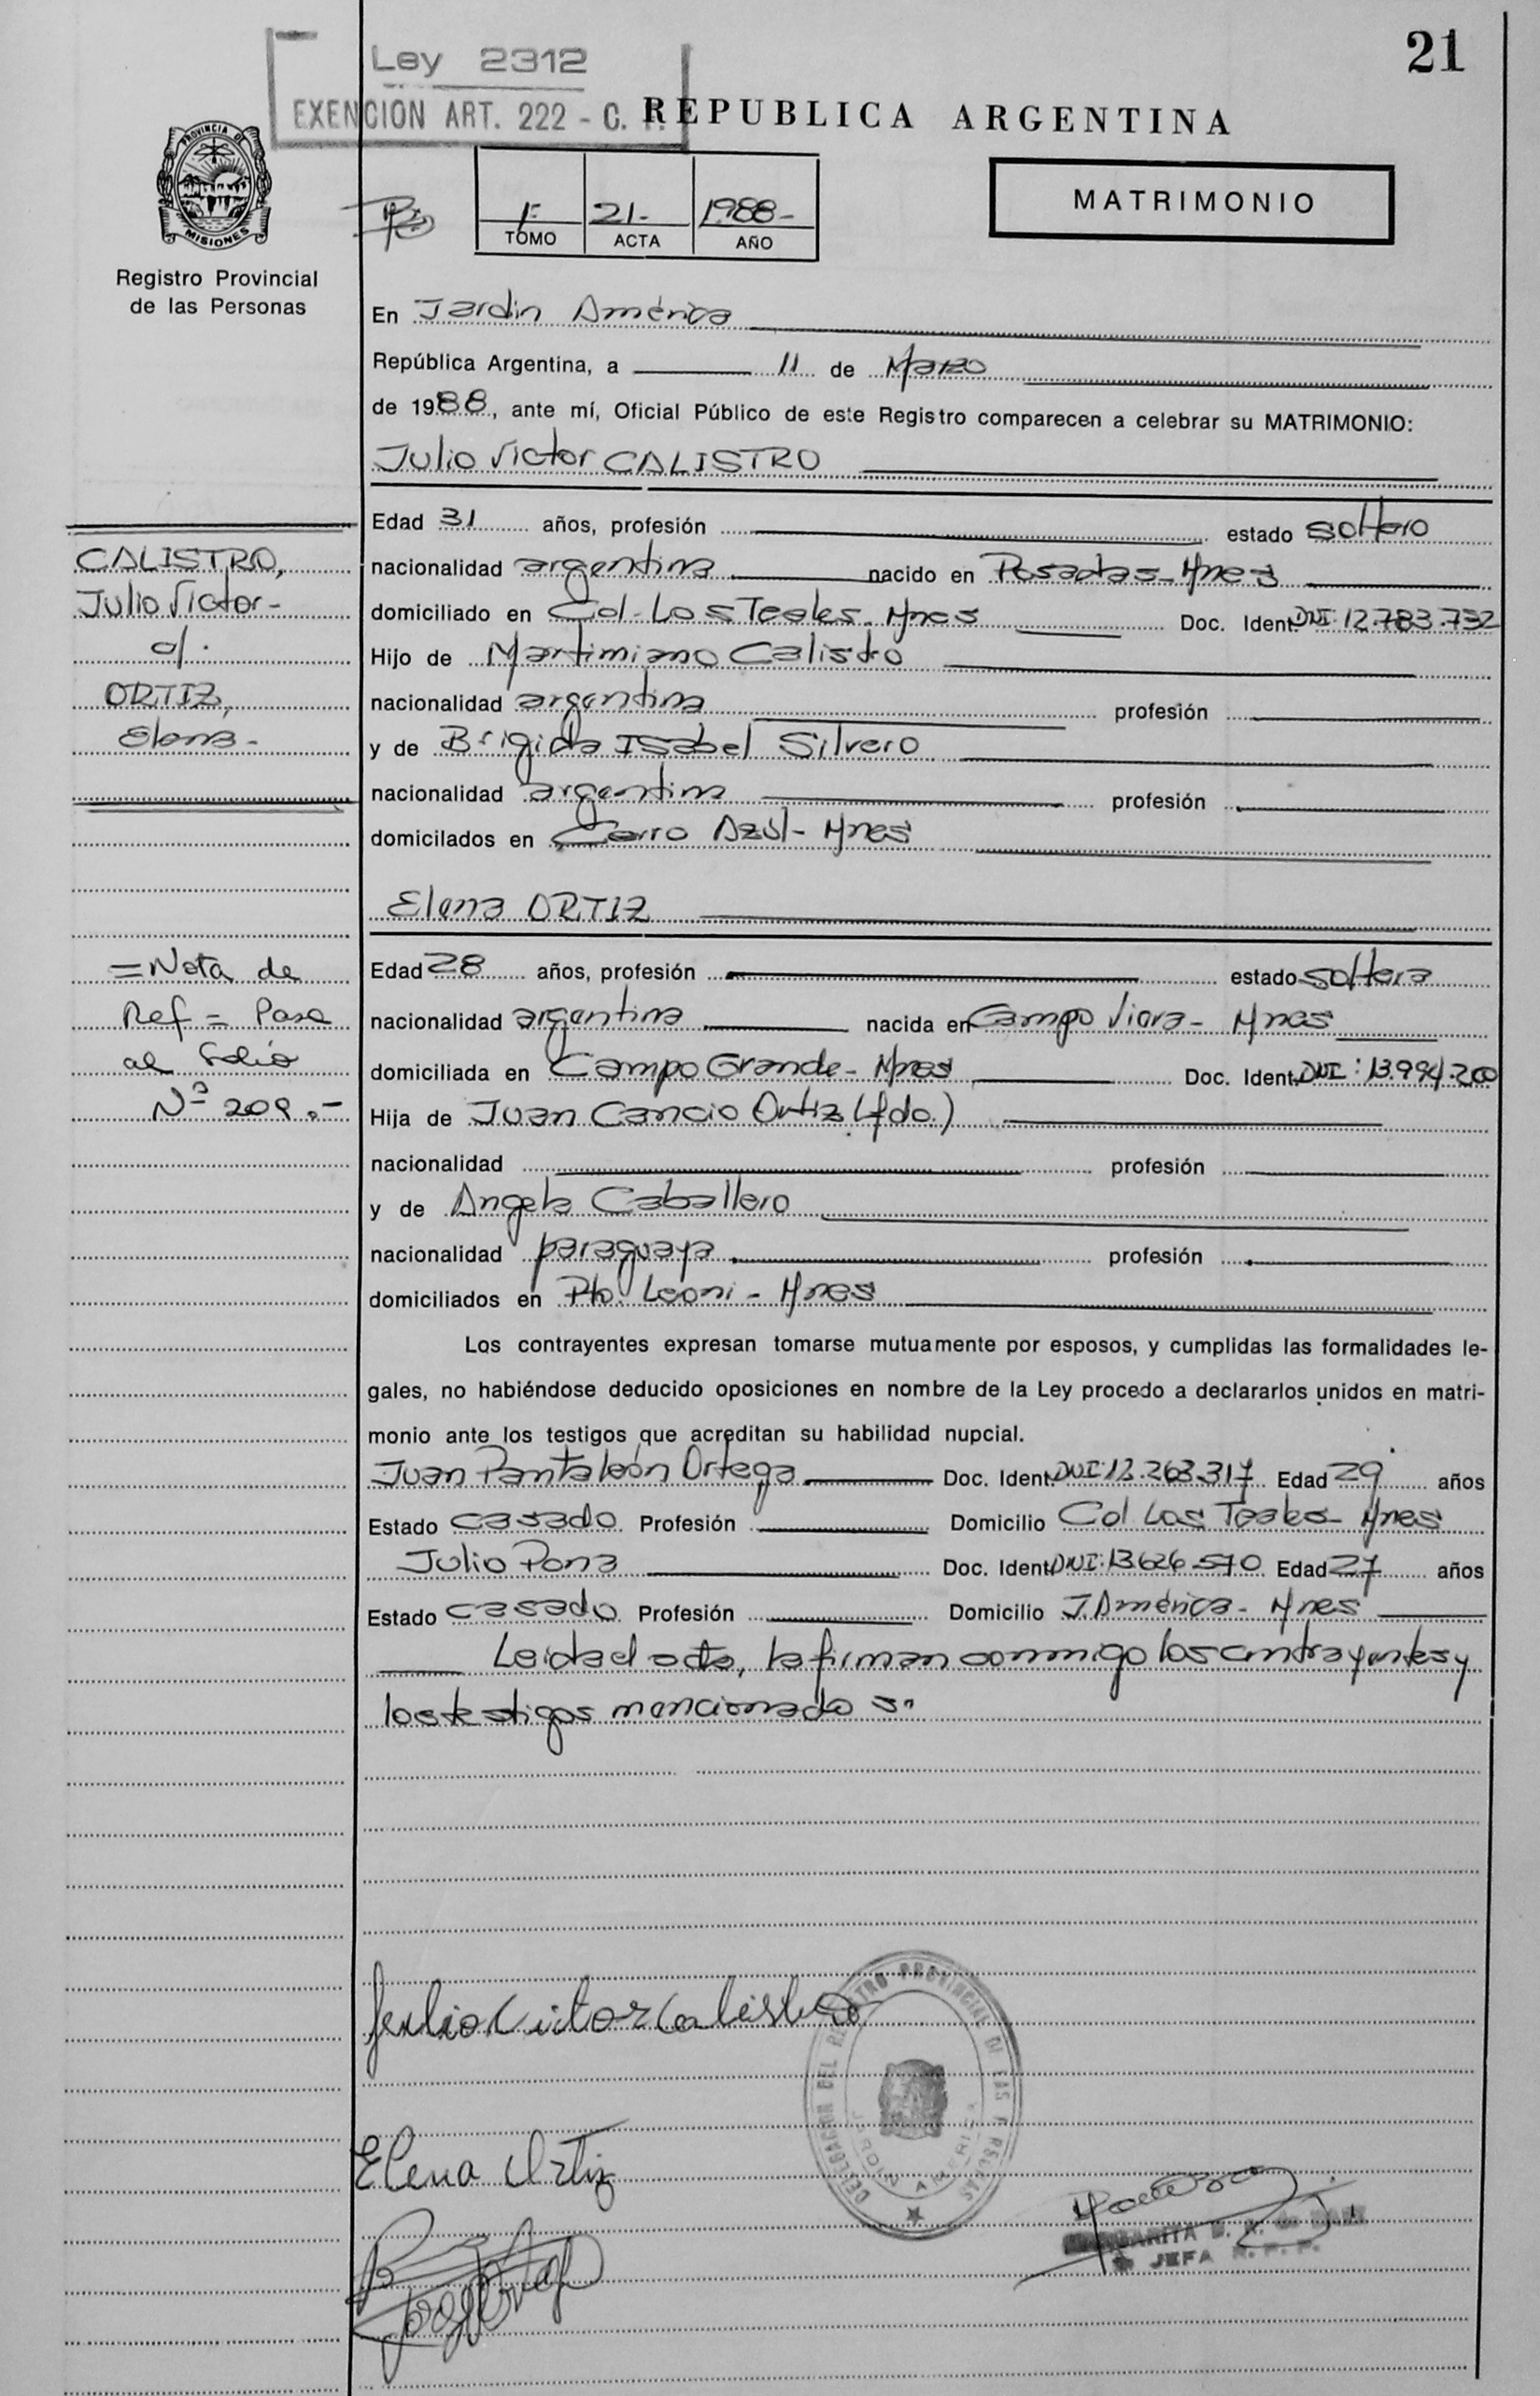 21
Ley 2312
EXENCION ART. 222 - C.
REPUBLICA ARGENTINA
PROVINCIA DE
MISIONES
Registro Provincial
de las Personas
1º 21- 1988-
TOMO ACTA AÑO
MATRIMONIO
En Jardín América
República Argentina, a 11 de Marzo
de 1988, ante mí, Oficial Público de este Registro comparecen a celebrar su MATRIMONIO:
Julio Victor CALISTRO
Edad 31 años, profesión estado soltero
nacionalidad argentina nacido en Posadas-Mnes
domiciliado en Col-Los Teales-Mnes Doc. Ident. DNI: 12.783.732
Hijo de Martimiano Calistro
nacionalidad argentina profesión
y de Brigida Isabel Silvero
nacionalidad argentina profesión
domicilados en Cerro Azul-Mnes
Elena ORTIZ
Edad 28 años, profesión estado soltera
nacionalidad argentina nacida en Campo Viera-Mnes
domiciliada en Campo Grande-Mnes Doc. Ident. DNI: 13.994.200
Hija de Juan Cancio Ortiz (fdo.)
nacionalidad profesión
y de Angela Caballero
nacionalidad paraguaya profesión
domiciliados en Pto. Leoni-Mnes
Los contrayentes expresan tomarse mutuamente por esposos, y cumplidas las formalidades le-
gales, no habiéndose deducido oposiciones en nombre de la Ley procedo a declararlos unidos en matri-
monio ante los testigos que acreditan su habilidad nupcial.
Juan Pantaleón Ortega Doc. Ident. DNI: 12.263.317 Edad 29 años
Estado casado Profesión Domicilio Col Los Teales-Mnes
Julio Pona Doc. Ident. DNI: 13.626.570 Edad 27 años
Estado casado Profesión Domicilio J. América-Mnes
Leida el acta, la firman conmigo los contrayentes y
los testigos mencionados.
CALISTRO,
Julio Victor-
c/.
ORTIZ,
Elena-
=Nota de
Ref= Pasa
al Folio
Nº 209.-
Julio Victor Calistro
Elena Ortiz
DELEGACION DEL REGISTRO PROVINCIAL DE LAS PERSONAS
AMERICA
MARGARITA
JEFA R. P. P.